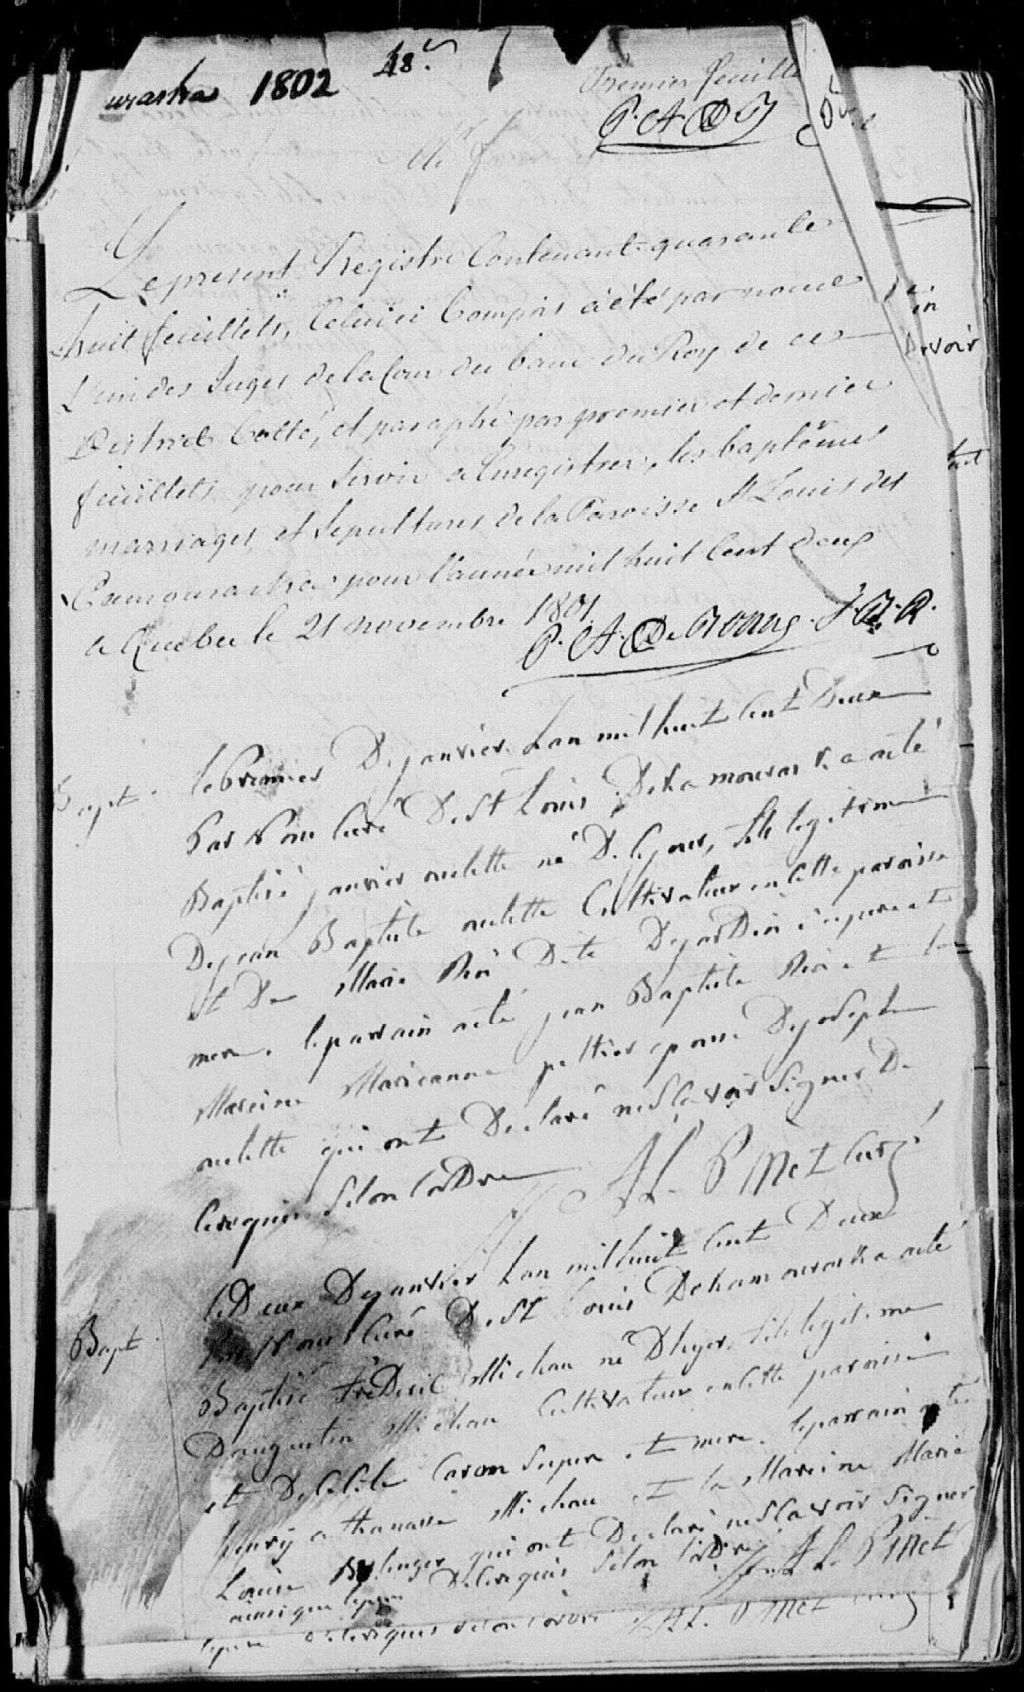 uraska 1802 48.
Premier feuille
P. A. D B
Le present Registre Contenant quarante
huit feuillets, Celuici Compris à été par nous
L'un des Juges de la Cour du banc du Roy de ce
District Cotté, et paraphé par premier et dernier
feuillets pour Servir a Enregistrer, les baptêmes
marriages, et Sepultures de la Paroisse St Louis des
Camouraska pour l'année mil huit Cent deux
a Quebec le 21 novembre 1801
P. A. De Bonne J.B.R.
in
Devoir
Bapt.
le Premier De janvier Lan mil huit Cent Deux
Par Nous Curé De St Louis De Kamouraska a eté
Baptisé janvier oulette né De ce jour, fils legitime
De jean Baptiste oulette Cultivateur en cette paroisse
et De Marie Roi Dite DejarDin Ses pere et
mere. le parrain a eté jean Baptiste Roi et la
Mareine Marieanne peltier epouse De joseph
oulette qui ont Declaré ne Scavoir Signer De
Ce requis Selon lorDre
AL. Pinet Curé
Bapt
le Deux De janvier Lan mil huit Cent Deux
Par Nous Curé De St Louis De Kamouraska a eté
Baptisé FreDeric Michau né D'hyer, fils legitime
D'augustin Michau Cultivateur en cette paroisse
et De Celile Caron Ses pere et mere. le parrain a eté
henry athanasse Michau et la Mareine Marie
Louise Belenger qui ont Declaré ne Scavoir Signer
ainsi que le pere De Ce requis Selon lorDre AL. Pinet
le pere De Ce requis Selon lordre AL. Pinet curé